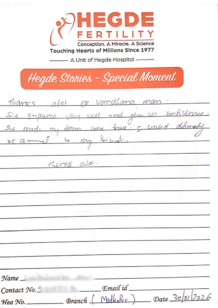 HEGDE
FERTILITY
Conception. A Miracle. A Science
Touching Hearts of Millions Since 1977
A Unit of Hegde Hospital
Hegde Stories - Special Moment
Thanks alot to Vandhana mam
She explains very well and give us confidence.
She made my dream come true. I would definitely
to my friends.
Thanks alot.
Name
Contact No. Email id
Hea No. Branch ( Malkajgiri ) Date 30/01/2026